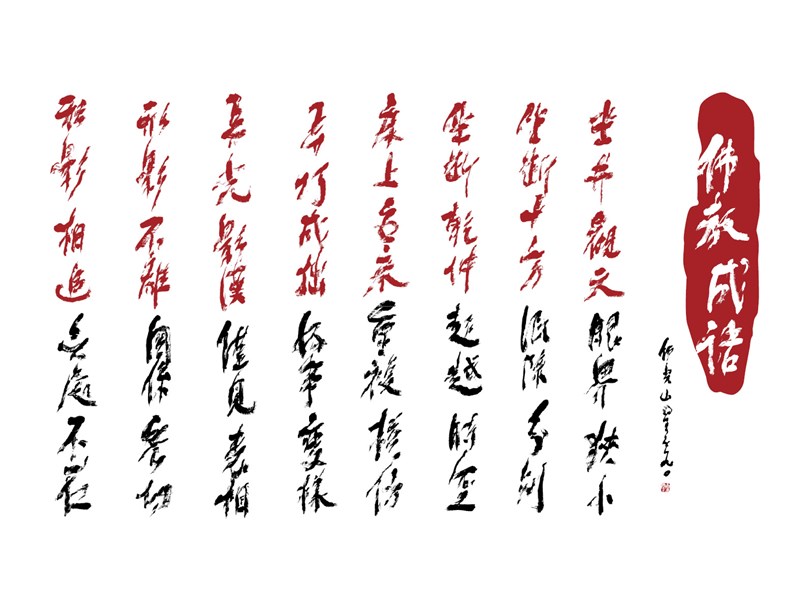 佛教成語
佛光山星雲
坐井觀天 眼界狹小
坐斷十方 消除分別
坐斷乾坤 超越時空
床上安床 重複模仿
弄灯成拙 好事變樣
弄光影漢 僅見表相
形影不離 關係密切
形影相追 無處不在